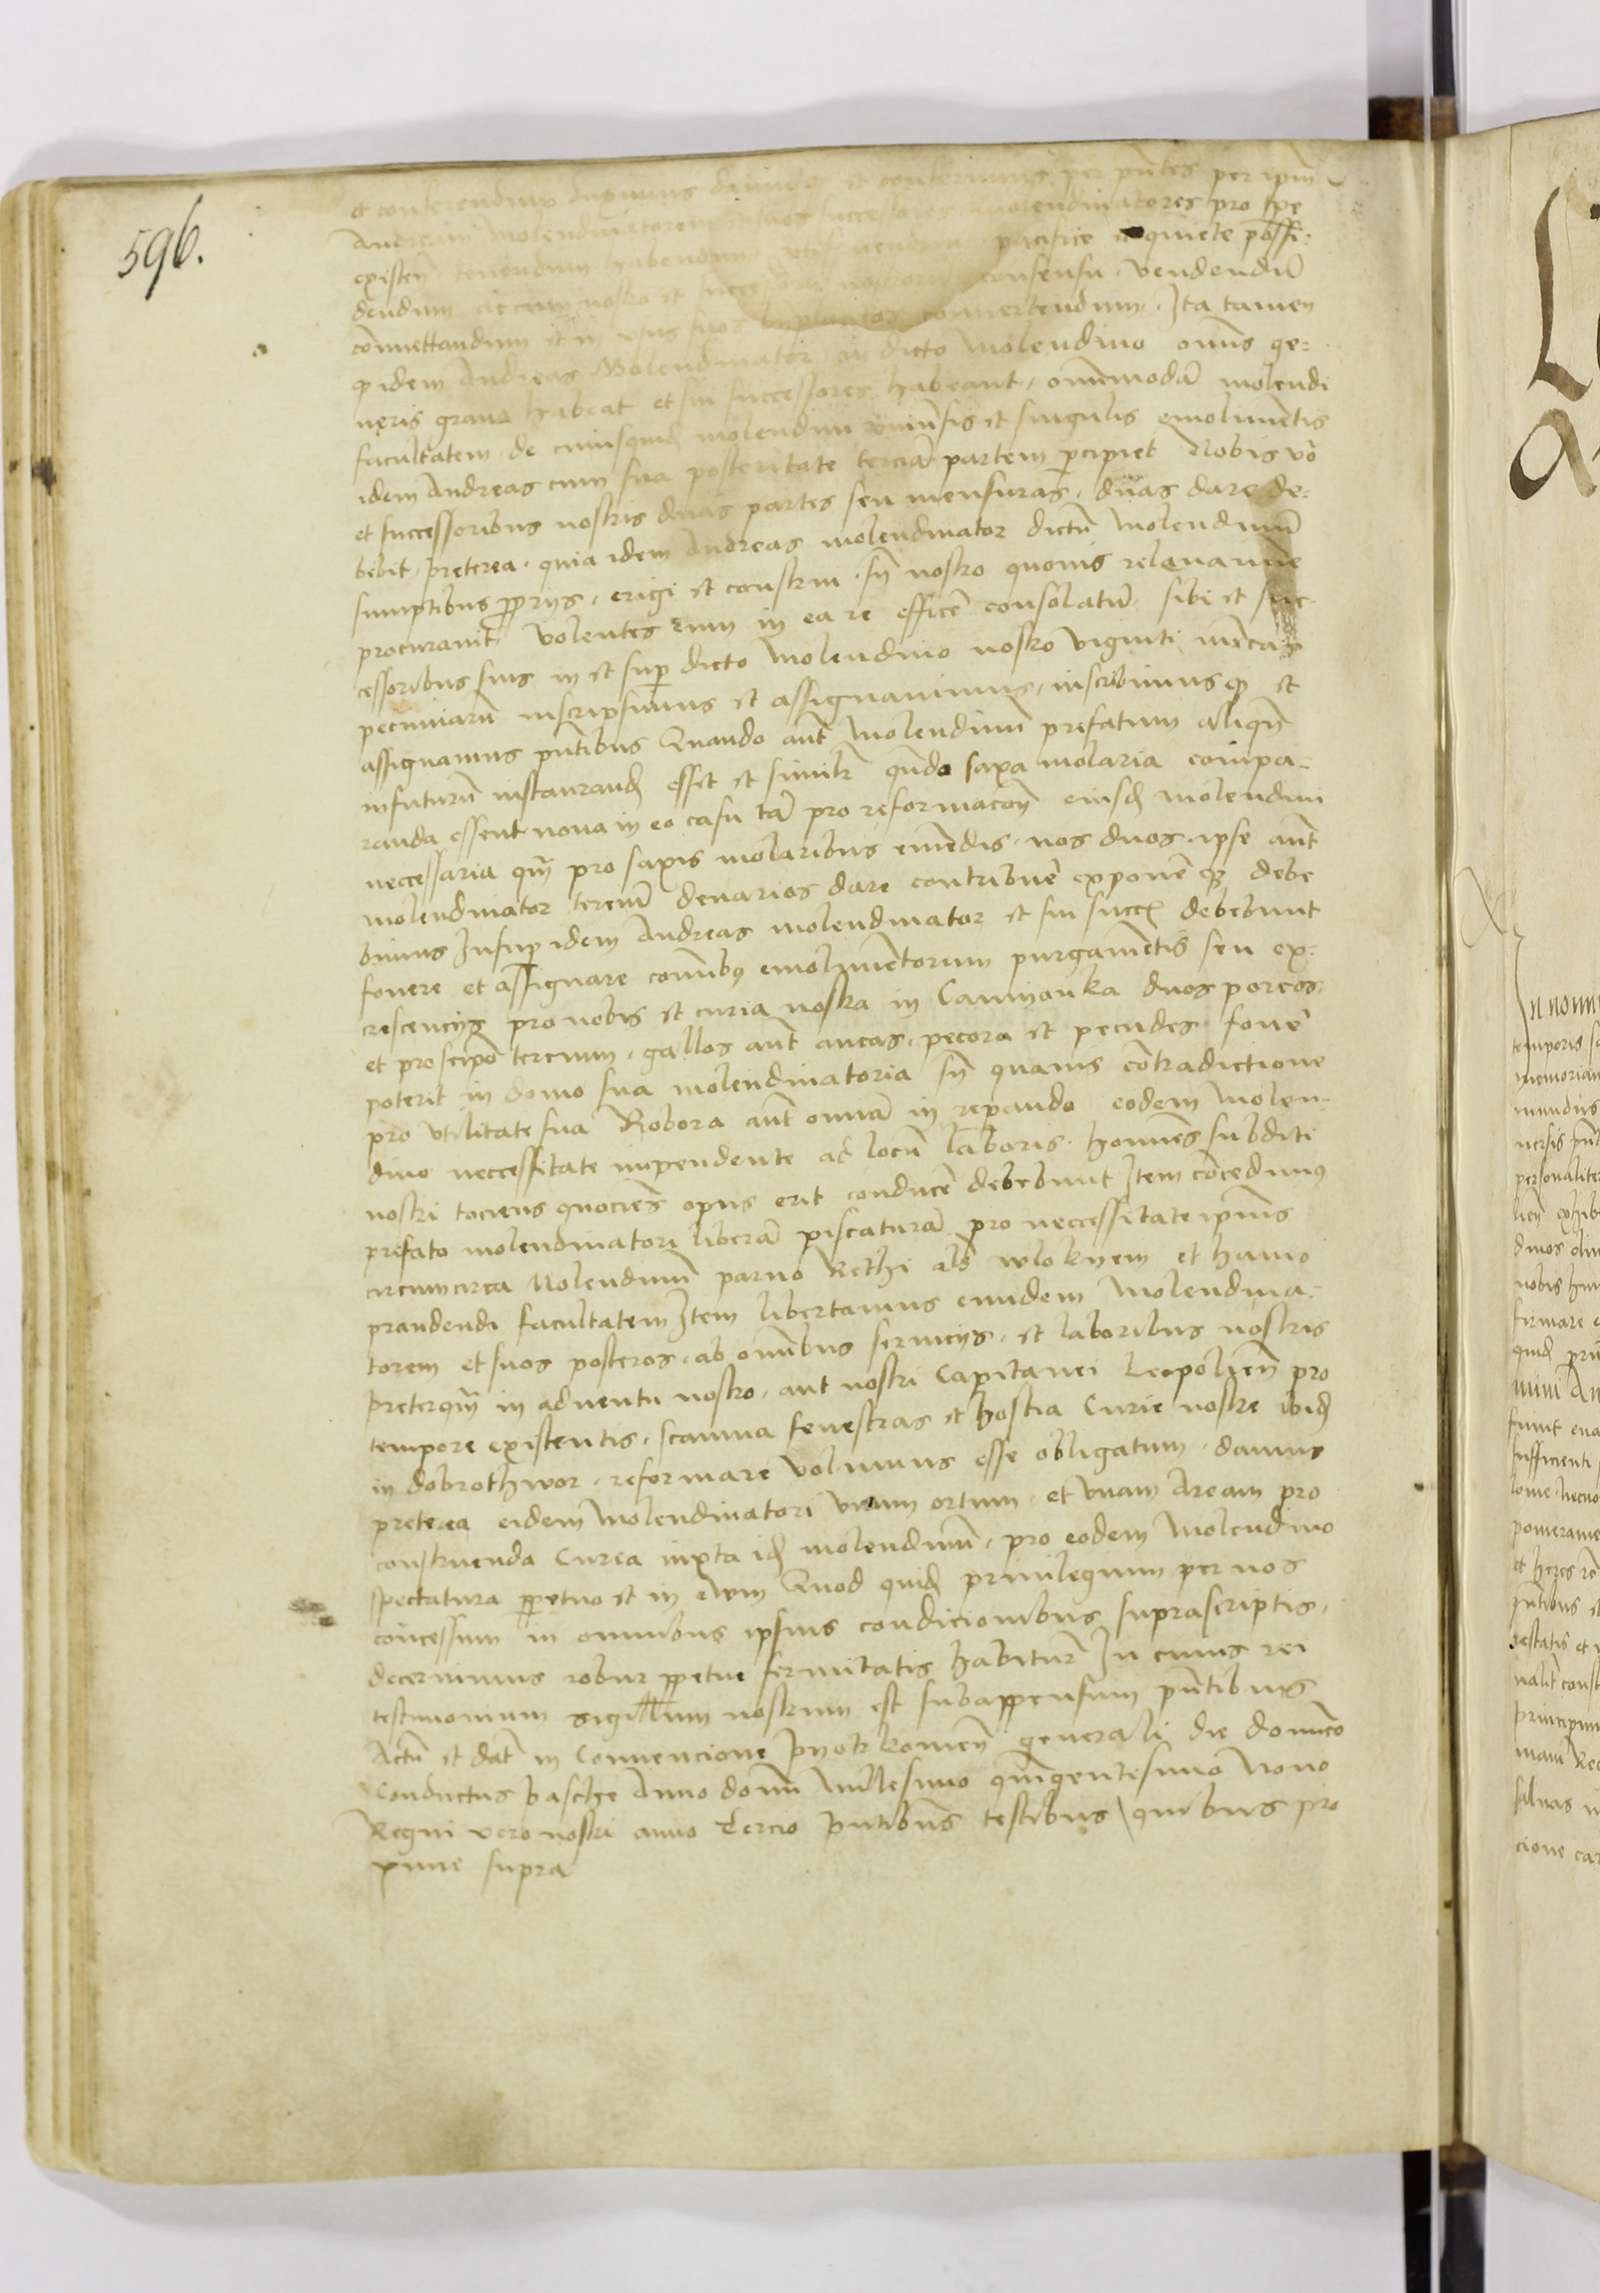 596.
et conferendum duximus damusque et conferimus per pntes per ipm
Andream molendinatorem suos successores molendinatores pro tpe
existen tenendum habendum utifruendum pacifice et quiete possi-
dendum ac cum nostro et successorum nostrorum consensu vendendum
commuttandum et in usus suos beneplacitos convertendum. Ita tamen
q idem Andreas Molendinator in dicto Molendino omnis ge-
neris grana habeat et sui successores habeant omnimodam molendi
facultatem de cuiusquid molendini universis et singulis emolimentis
idem Andreas cum sua posteritate terciam partem percipiet Nobis vero
et successoribus nostris duas partes seu mensuras duas dare de-
bebit, preterea quia idem Andreas molendinator dictum molendinum
sumptibus proprijs erigi et construi sn nostro quovis relevamine
procuravit volentes eum in ea re efficere consolatum sibi et suc-
cessoribus suis in et super dicto Molendino nostro viginti marcas
pecuniarum inscripsimus et assignavimus, inscribimusque et
assignamus pntibus Quando aut Molendinum prefatum aliqn
infuturum instaurand esset et similr qndo saxa molaria compa-
randa essent nova in eo casu tam pro reformacone eiusd molendini
neccessaria qm pro saxis molaribus emendis nos duos ipse aut
molendinator tercium denarios dare contribuere exponere q debe
bimus Insuper idem Andreas molendinator et sui succ debebunt
fovere et assignare omnibus emolimentorum purgamentis seu ex-
crescencijs pro nobis et curia nostra in Camyonka duos porcos,
et pro seipo tercium, gallos aut aucas, pecora et pecudes fovere
poterit in domo sua molendinatoria sn quavis contradictione
pro utilitate sua Robora aut omnia in repando eodem Molen-
dino neccessitate impendente ad locum laboris homines subditi
nostri tociens quociens opus erit conducere debebunt Item concedimus
prefato molendinatori liberam piscaturam pro neccessitate ipius
circumcirca Molendinum parvo Rethi als wloknem et hamo
prandendi facultatem Item libertamus eundem Molendina-
torem et suos posteros ab omnibus servicijs et laboribus nostris
preterqm in adventu nostro, aut nostri Capitanei Leopolien pro
tempore existentis, scamna fenestras et hostia Curie nostre ibid
in dobrothwor reformare volumus esse obligatum. damus
preterea eidem Molendinatori unum ortum et unam Aream pro
construenda Curea iuxta id molendinum, pro eodem Molendino
spectatura ppetuo et in evm Quod quid privilegium per nos
concessum in omnibus ipsius condicionibus suprascriptis,
decernimus robur ppetue firmitatis habiturum In cuius rei
testimonium sigillum nostrum est subappensum pntibus
Actum et dat in Convencione Pyotrkowien generali die dominico
Conductus pasche Anno domini Millesimo quingentesimo Nono
Regni vero nostri anno Tercio Pntibus testibus quibus pro
xime supra